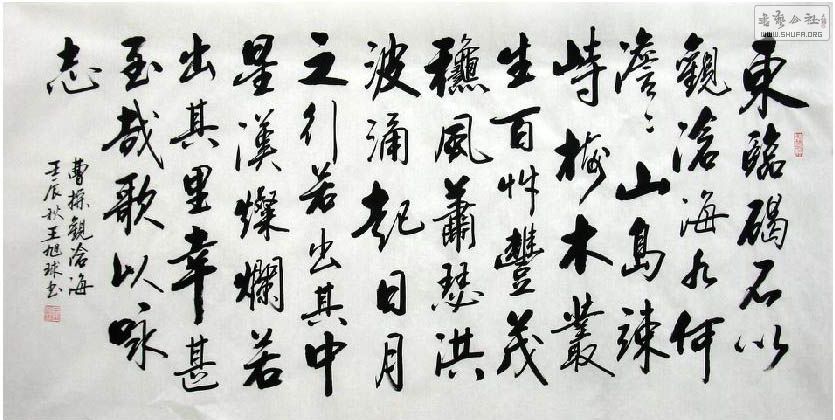 東臨碣石以
觀滄海水何
澹〻山島竦
峙樹木叢
生百艸豐茂
龝風蕭瑟洪
波涌起日月
之行若出其中
星漢燦爛若
出其里幸甚
至哉歌以咏
志
曹操觀滄海
壬辰秋王旭球书
书藝公社
WWW.SHUFA.ORG